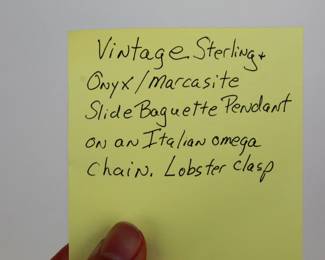 Vintage Sterling +
Onyx/Marcasite
Slide Baguette Pendant
on an Italian omega
chain. Lobster clasp